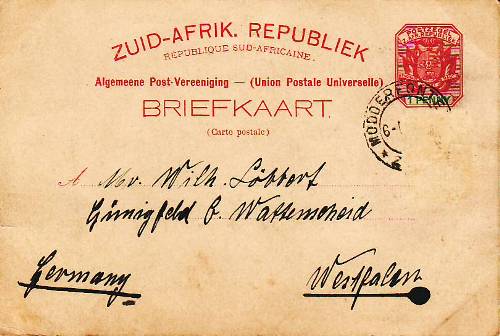 ZUID-AFRIK. REPUBLIEK
REPUBLIQUE SUD-AFRICAINE.
Algemeene Post-Vereeniging — (Union Postale Universelle)
BRIEFKAART.
(Carte postale)
1 PENNY
MODDERFONTEIN
6-
Z
A Mr. Wilh. Löbbert
Günigfeld b. Wattenscheid
Germany
Westfalen